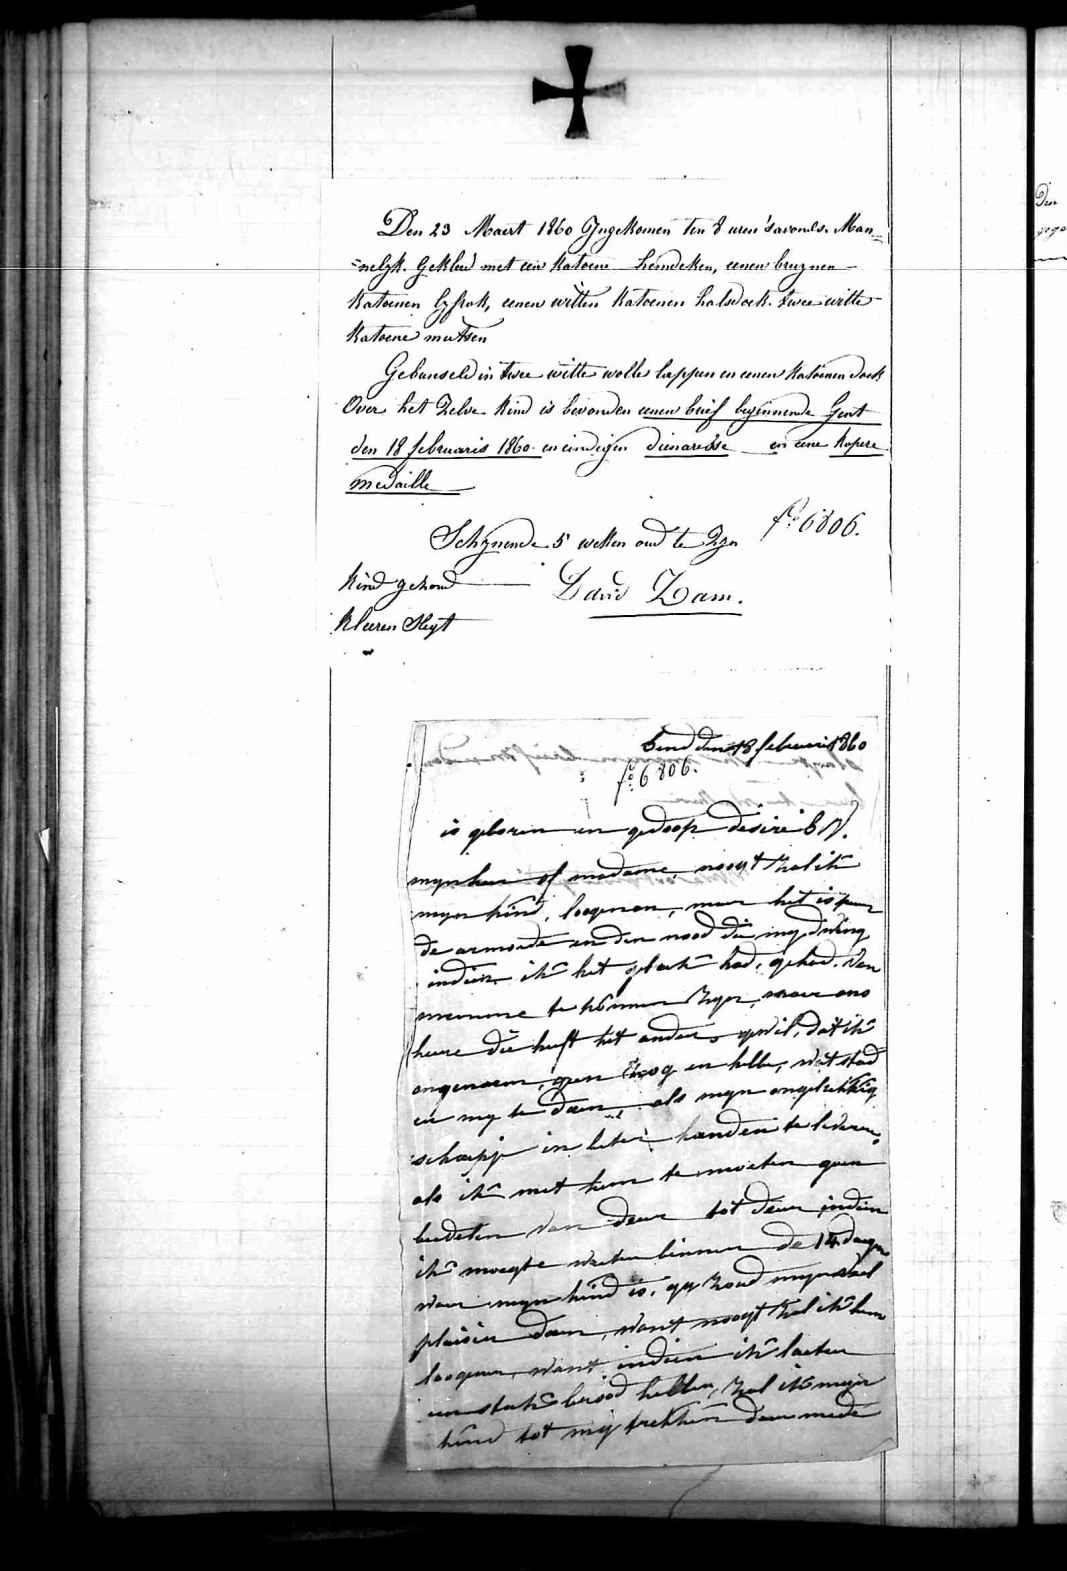 Den 23 Maert 1860 Ingekomen ten 8 uren 's avonds. Man=
=nelyk. Gekleed met een katoene hemdeken, eenen bruynen
katoenen lyfrok, eenen witten katoenen halsdoek. twee witte
katoene mutsen
Gebunseld in twee witte wolle lappen en eenen katoenen doek
Over het zelve kind is bevonden eenen brief beginnende Gent
den 18 februaris 1860. en eindigen dienaresse en eene kopere
medaille
Schynende 5 weken oud te zyn
fo 6806.
kind gezond
David Zam.
kleeren slegt
Gend den 18 februarii 1860
fo 6806.
is geboren en gedoop desire b V.
mynheer of madame, nooyt zal ik
myn kind, loogenen, maer het is puer
de armoede en den nood die my dwing
indien ik het geluk had, gehad. van
menne te konnen zyn, maer ons
heere die heeft het anders gewil, dat ik
ongenoem, geen zog en hebbe, wat stad
er my te doen, als myn ongelukkig
schaepje in beter handen te leveren,
als ik met hem te moeten gaen
beedelen van deur tot deur, indien
ik moegte weten binnen de 14 dagen
waer myn kind is, gy zoud myn veel
plaisier doen, want nooyt zal ik hem
loogenen, want indien ik laeter
een stuk brood hebben, zal ik mijn
kind tot mij trekken den mede